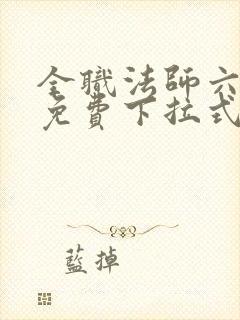 全職法師六
免費下拉式
藍掉